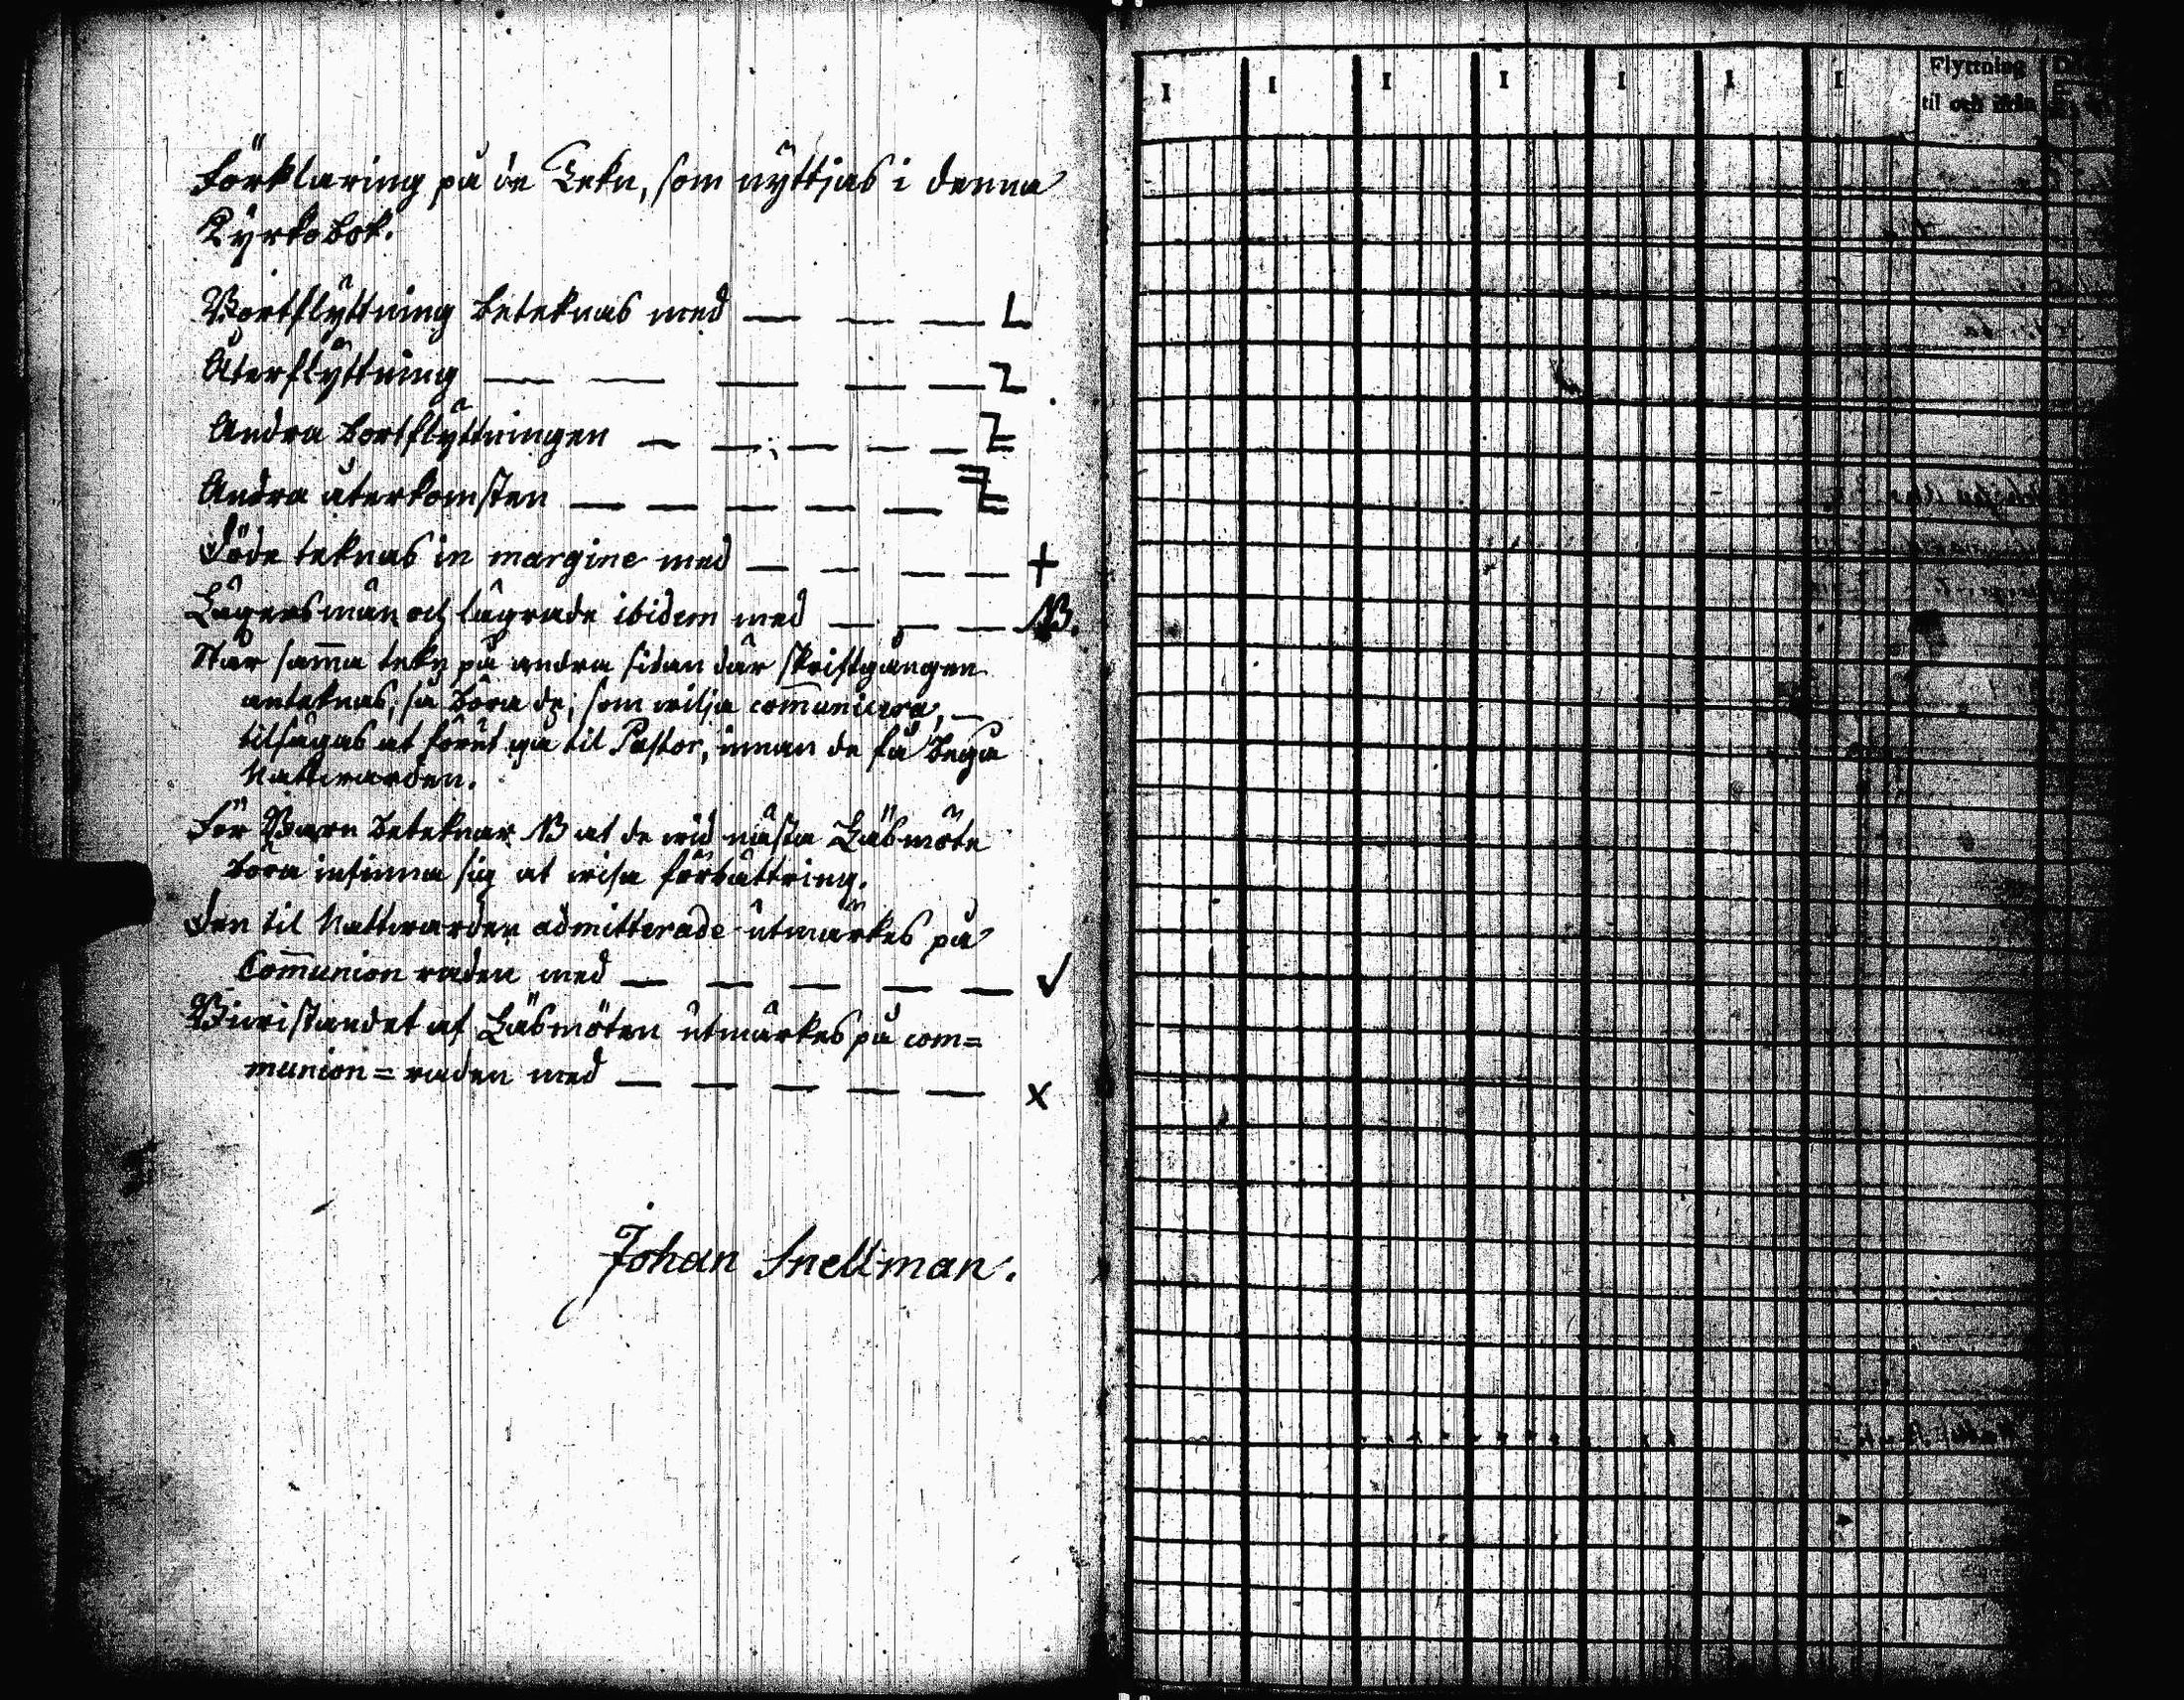 Förklaring på de Tekn, som nyttjas i denna
Kyrkobok.
Bortflyttning beteknas med — — — L
Återflyttning — — — — —
Andra bortflyttningen — — — — —
Andra återkomsten — — — — —
Döde teknas in margine med — — — — +
Lägersmän och lägrade ibidem med — — — NB.
Står samma tekn på andra sidan där skriftgången
anteknas, så böra de, som vilja com̄unicera, —
tilsägas at förut gå til Pastor, innan de få begå
Nattvarden.
För Barn beteknar NB at de vid nästa Läsmöte
böra infinna sig at visa förbättring.
Den til Nattvarden admitterade utmärkes på
Com̄union raden med — — — — — √
Bivistandet af Läsmöten utmärkes på com=
munion=raden med — — — — — x
Johan Snellman.
I I I I I I I
Flyttning
til och ifrån